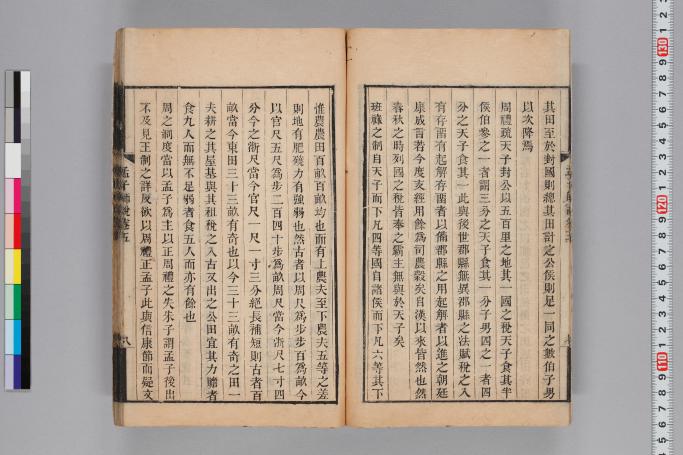 其田至於封國則總其田計之公侯則足一同之數伯子男
以次降焉
周禮疏天子封公以五百里之地其一國之稅天子食其半
侯伯參之一者謂三分之天子食其一分子男四之一者四
分之天子食其一此與後世郡縣無異郡縣之法賦稅之入
有存畱有起解存畱者以備郡縣之用起解者以進之朝廷
康成言若今度支經用餘爲司農穀矣自漢以來皆然也然
春秋之時列國之稅皆奉之霸主無與於天子矣
班祿之制自天子而下凡四等國自諸侯而下凡六等其下
惟農農田百畝百畝均也而有上農夫至下農夫五等之差
則地有肥磽力有強弱也然古者以周尺爲步步百爲畝今
以官尺五尺爲步二百四十步爲畝周尺當今浙尺七寸四
分今之浙尺當今官尺一尺一寸三分絕長補短則古者百
畝當今東田三十三畝有奇也以今三十三畝有奇之田一
夫耕之其屋基與其租稅之入古又出之公田宜其力贍者
食九人而無不足弱者食五人而亦有餘也
周之制度當以孟子爲主以正周禮之失朱子謂孟子後出
不及見王制之詳反欲以周禮正孟子此與信康節而疑文
孟子師說卷五
八